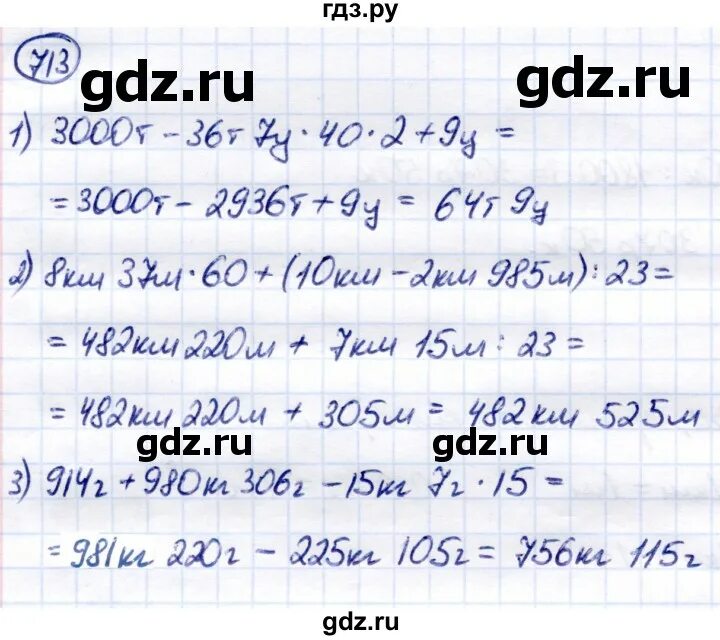 гдз.ру
713
gdz.ru gdz.ru
1) 3000т - 36т 7ц · 40 · 2 + 9ц =
= 3000т - 2936т + 9ц = 64т 9ц
2) 8км 37м · 60 + (10км - 2км 985м) : 23 =
= 482км 220м + 7км 15м : 23 =
= 482км 220м + 305м = 482км 525м
gdz.ru gdz.ru
3) 914г + 980кг 306г - 15кг 7г · 15 =
= 981кг 220г - 225кг 105г = 756кг 115г
gdz.ru